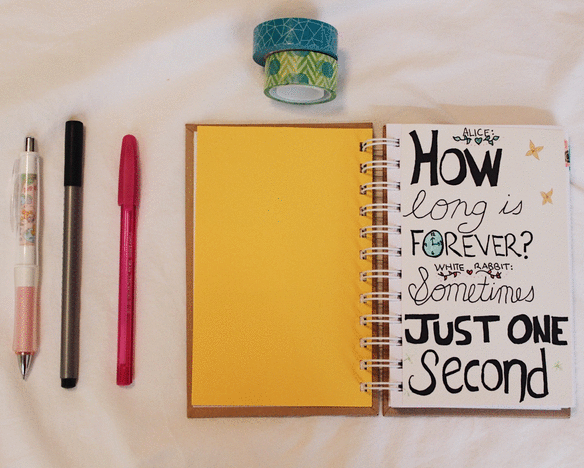 ALICE:
HOW
long is
FOREVER?
WHITE RABBIT:
Sometimes
JUST ONE
Second